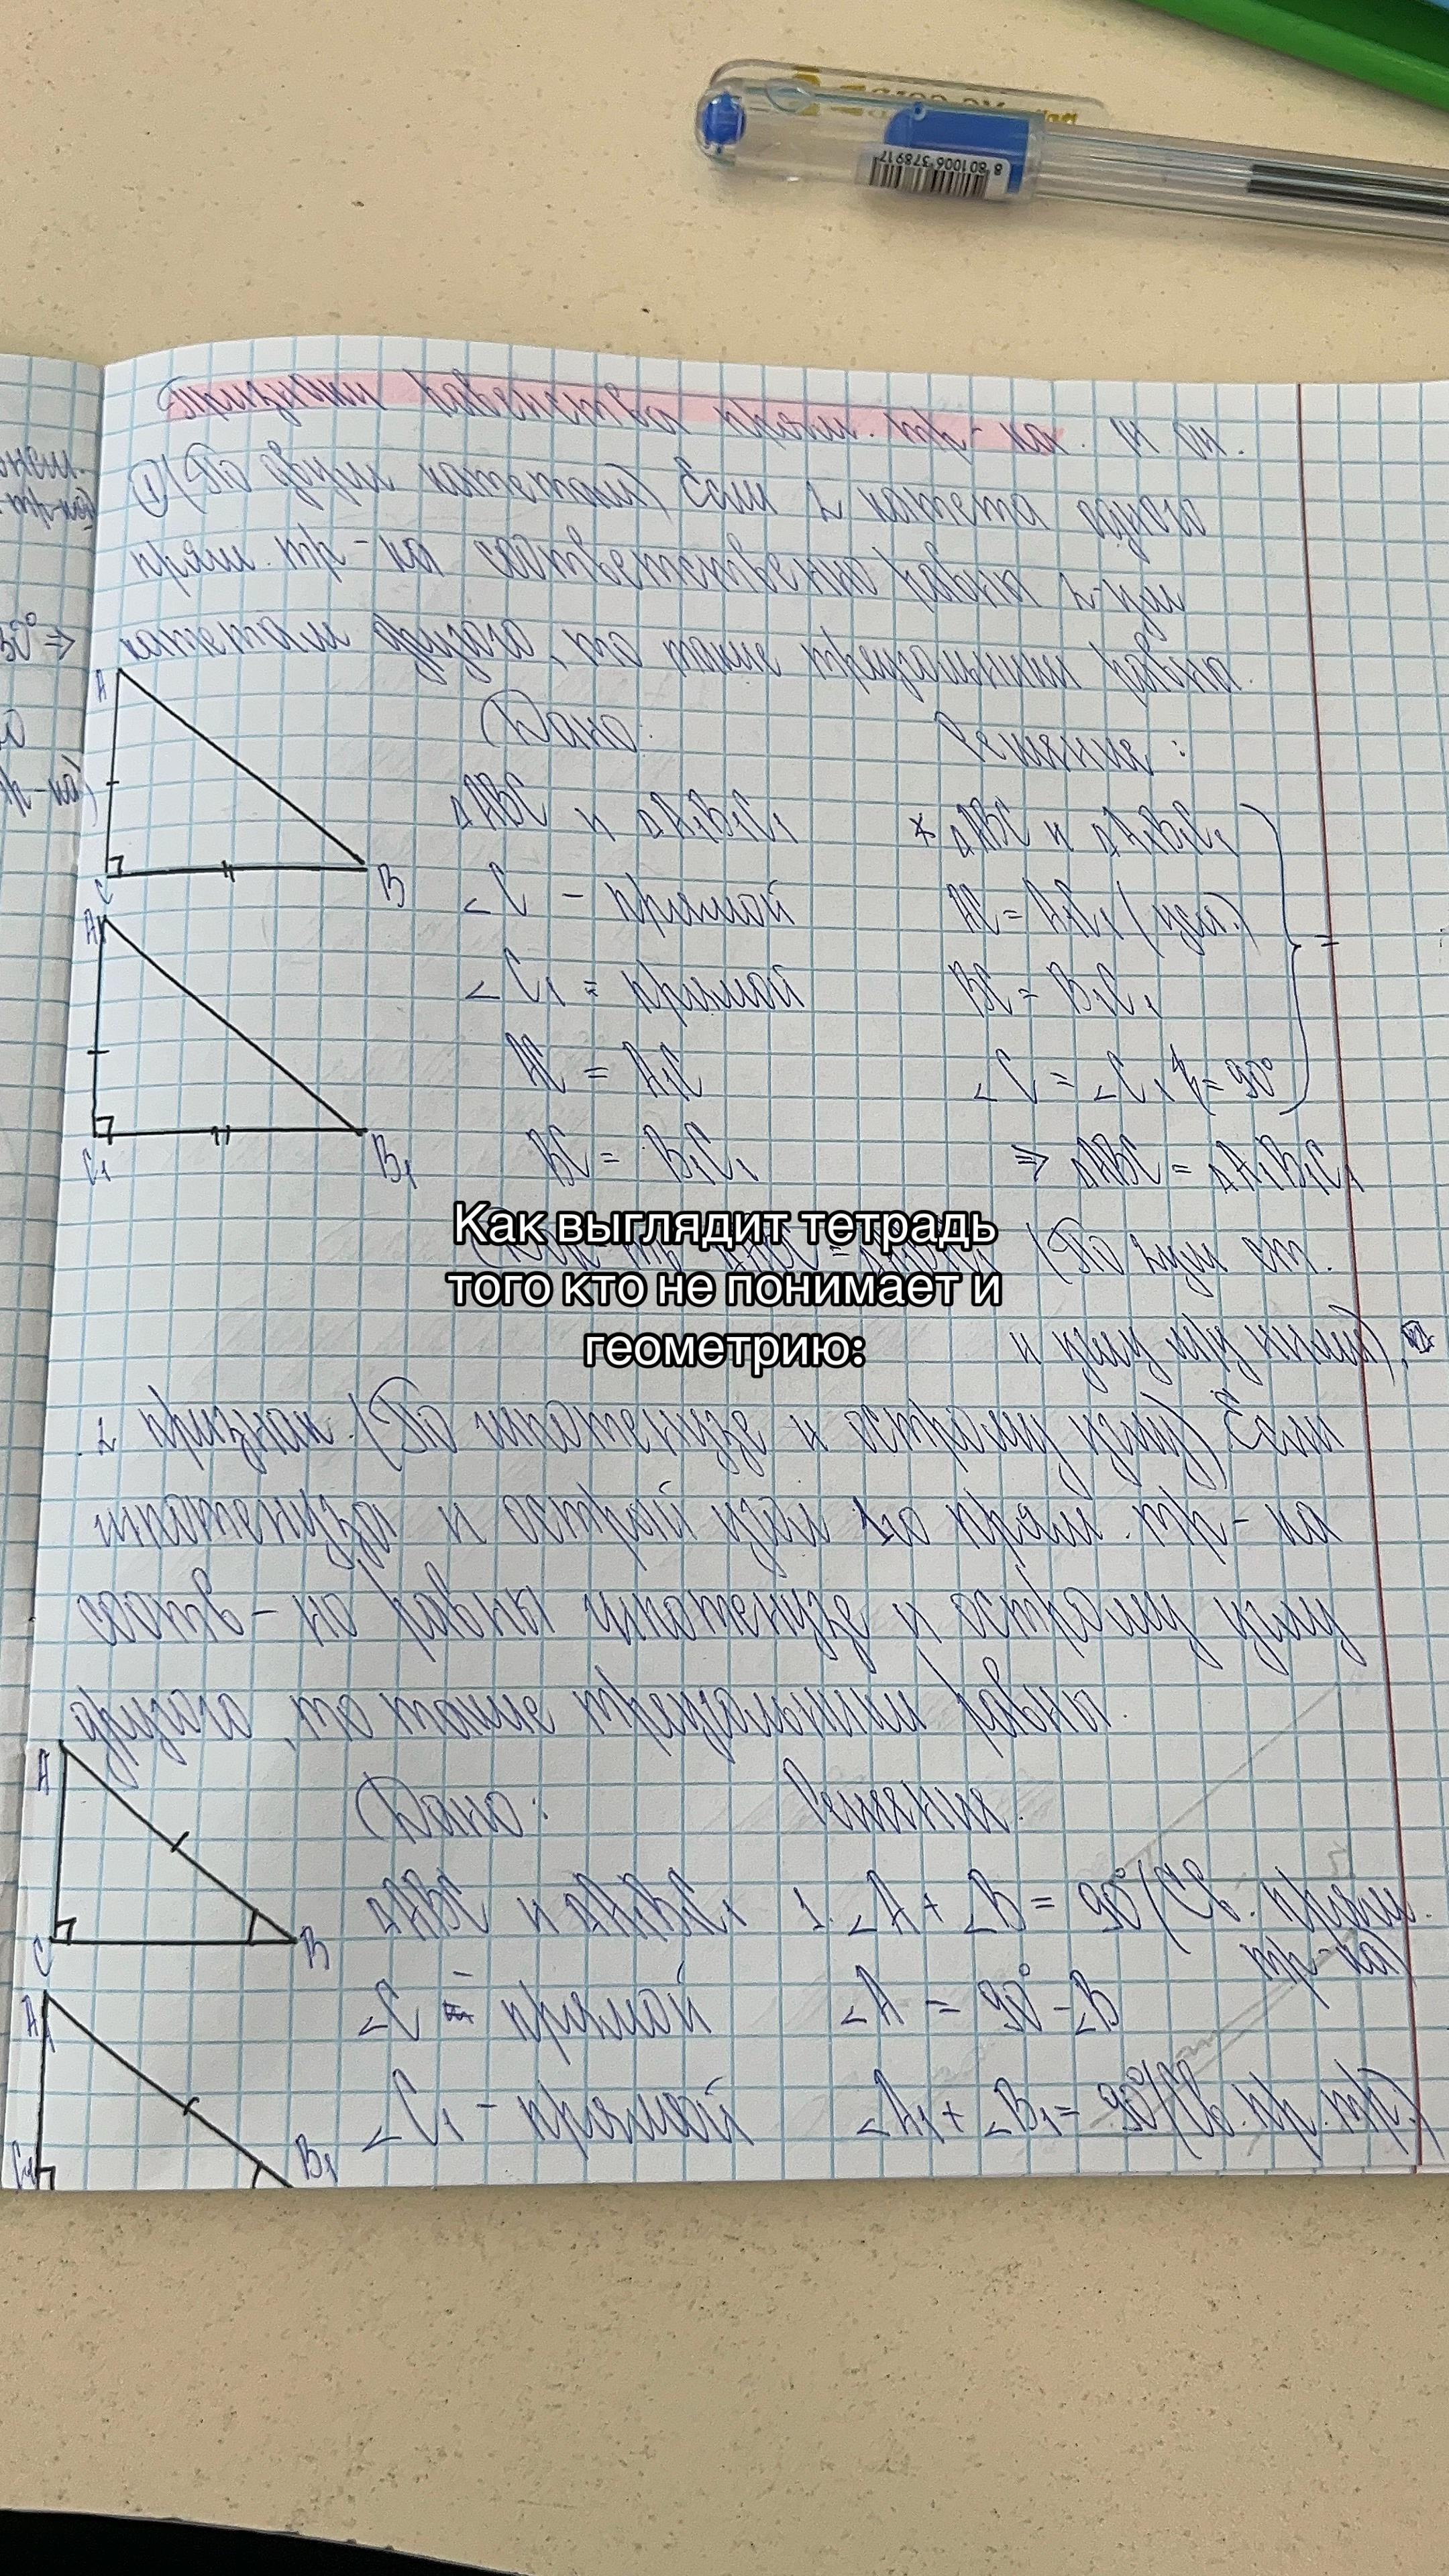 8 801006 378917
Признаки равенства прям. тр-ка.
① (По двум катетам) Если 2 катета одного
прям. тр-ка соответственно равны 2-ум
катетам другого, то такие треугольники равны.
30° ⇒
тр-ка)
A
C
B
A1
C1
B1
Дано:
△ABC и △A1B1C1
∠C - прямой
∠C1 = прямой
AC = A1C
BC = B1C1
Решение:
△ABC и △A1B1C1
AC = A1C1 (усл.)
BC = B1C1
∠C = ∠C1 = 90°
=
⇒ △ABC = △A1B1C1
(По 2ум
и углу м/у ними).
Как выглядит тетрадь
того кто не понимает и
геометрию:
2 признак. (По гипотенузе и острому углу) Если
гипотенуза и острый угол 1го прям. тр-ка
соотв-но равны гипотенузе и острому углу
другого, то такие треугольники равны.
A
C
B
A1
C1
B1
Дано:
△ABC и △A1B1C1
∠C - прямой
∠C1 - прямой
Решение:
1. ∠A + ∠B = 90° (Св. прям.
тр-ка)
∠A = 90° - ∠B
∠A1 + ∠B1 = 90° (Св. пр. тр.)